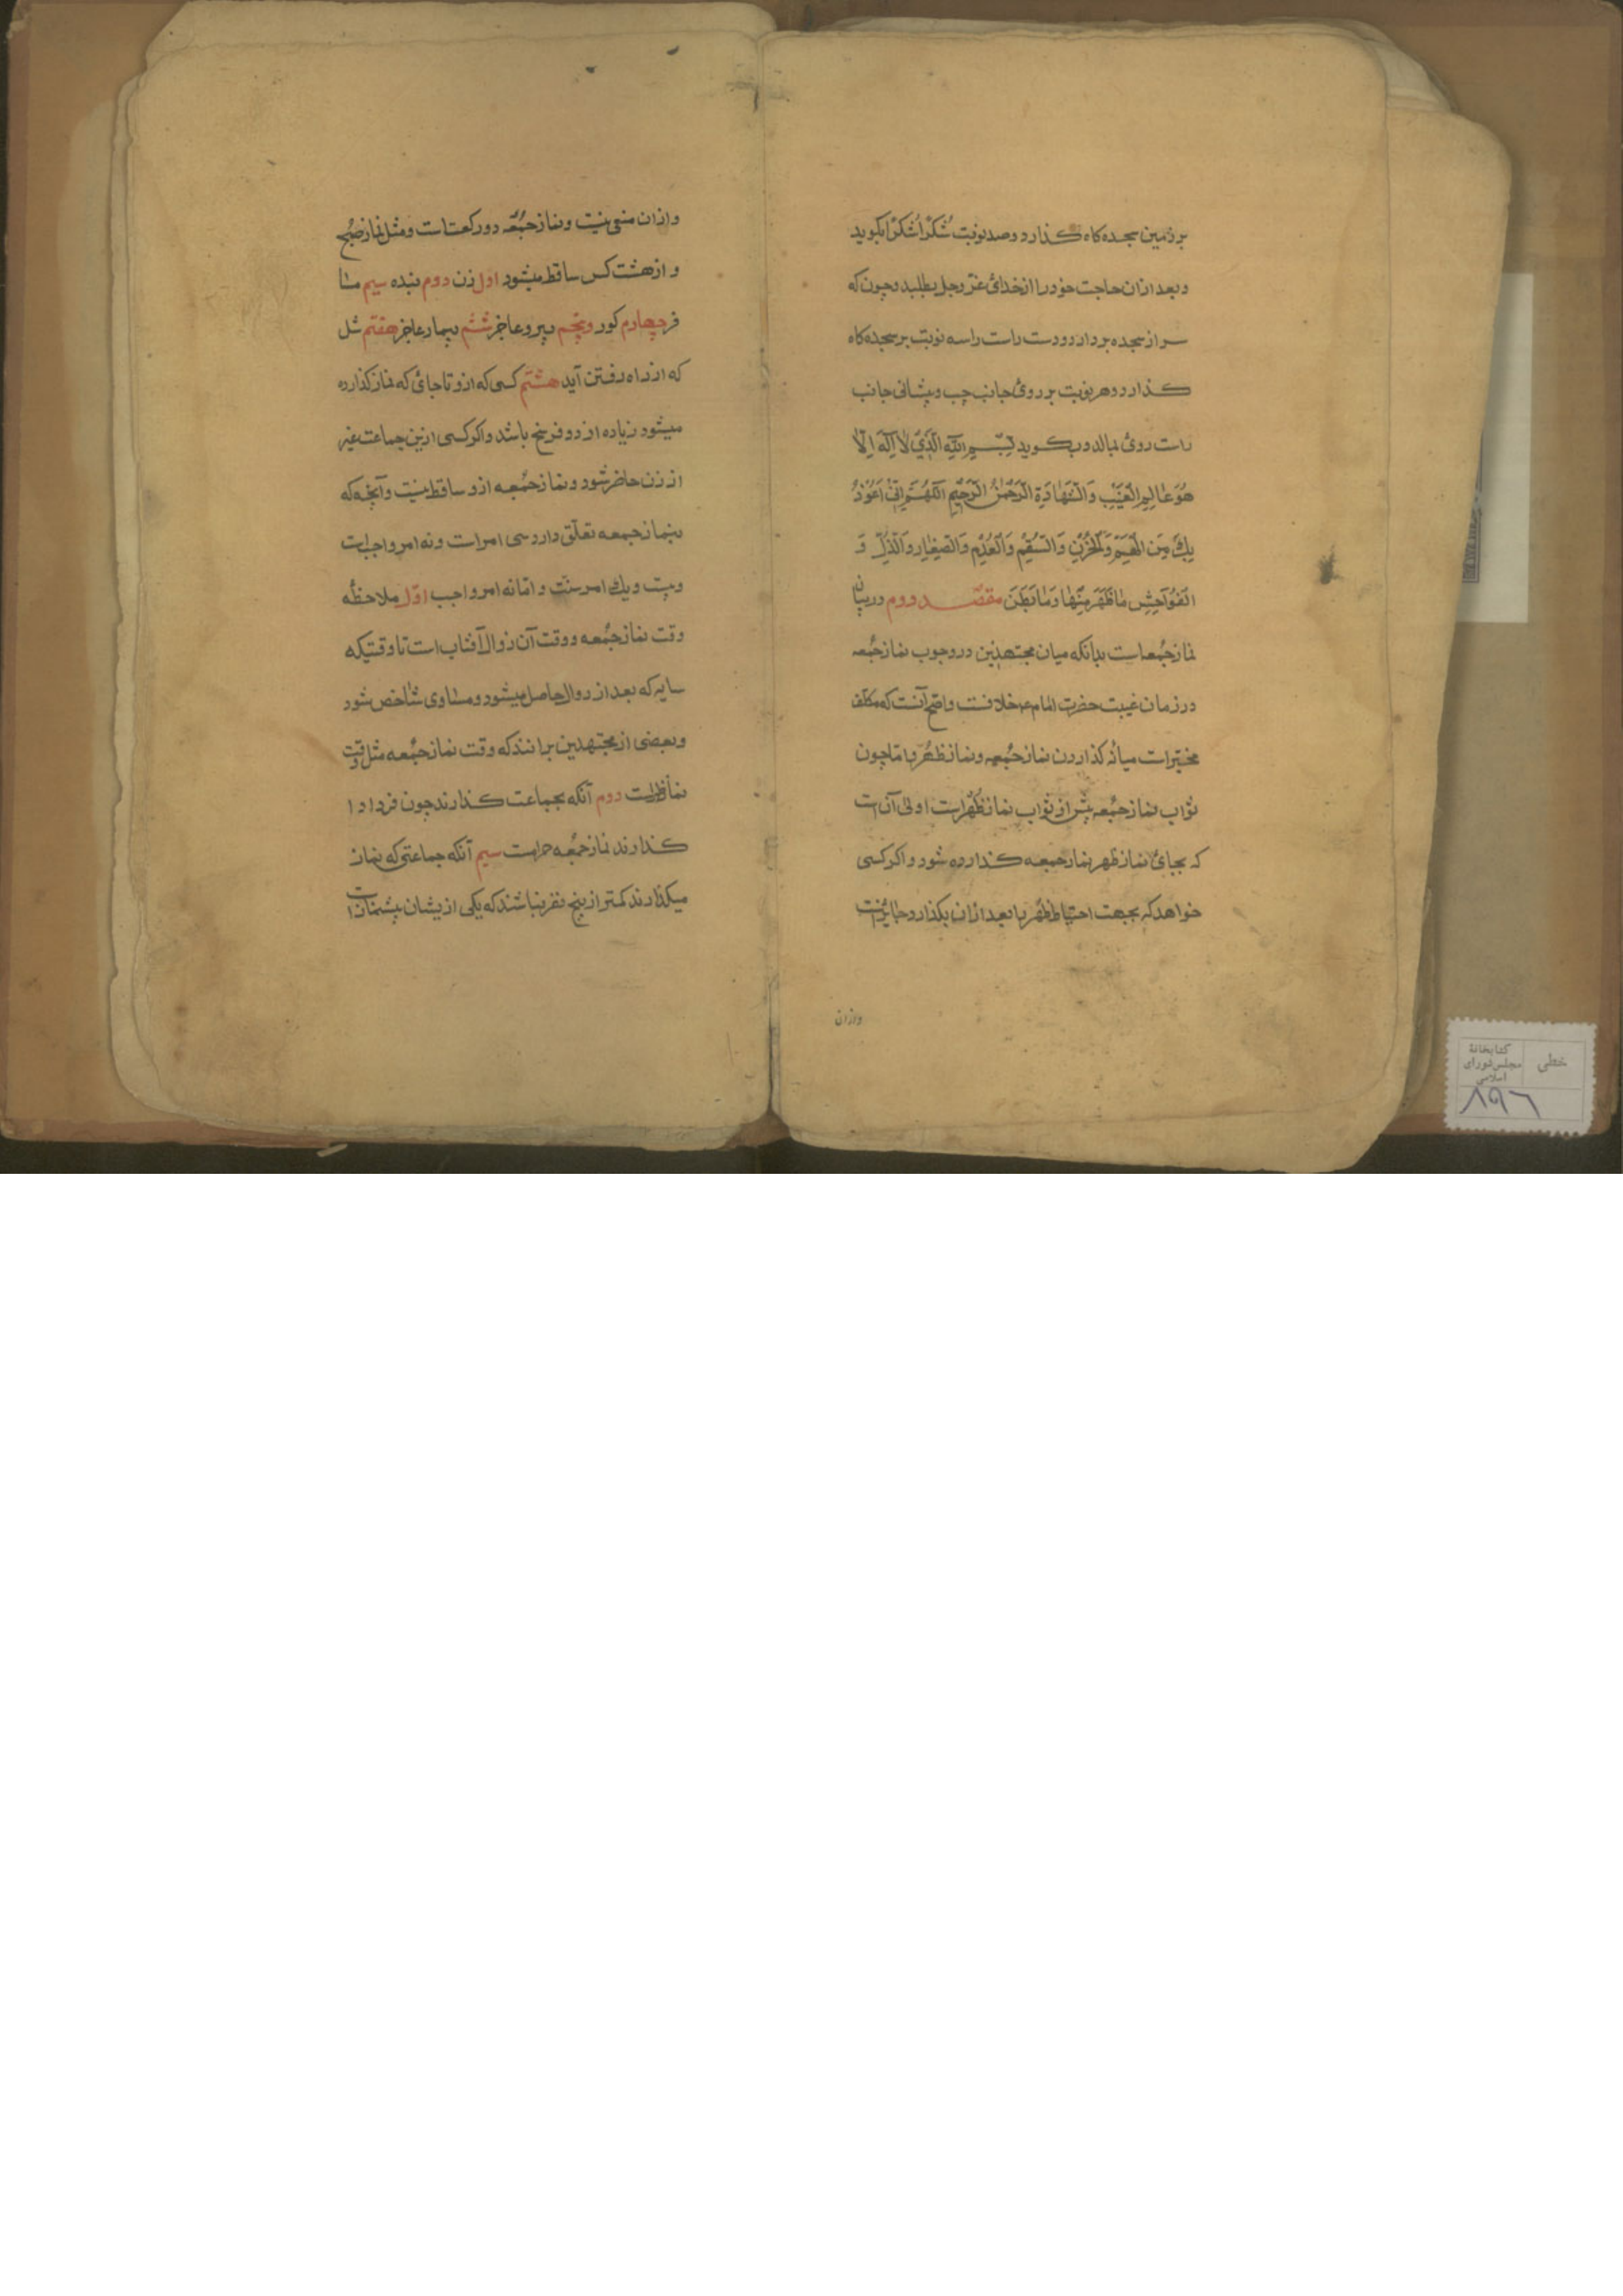 بر زمین سجده کاه کذارد و صد نوبت شُکْراً شُکْراً بکوید
و بعد ازان حاجت خود را از خدائ عزّ وجل بطلبد و چون که
سر از سجده بردارد و دست راست را سه نوبت بر سجده کاه
کذارد و هر نوبت بر روئ جانب چپ و پیشانی جانب
راست روئ بمالد و بکوید بِسْمِ اللّهِ الَّذِي لا اِلٰهَ اِلّا
هُوَ عالِمِ الْغَيْبِ وَالشَّهادَةِ الرَّحْمٰنُ الرَّحِيْمِ اللّهُمَّ اِنّي اَعُوْذُ
بِكَ مِنَ الْهَمِّ وَالْحُزْنِ وَالسُّقْمِ وَالْعُدْمِ وَالصِّغارِ وَالذُّلِّ وَ
الْفَوَاحِشِ ماظَهَرَ مِنْها وَمابَطَنَ مقصد دوم در بیان
نماز جُمعه است بدانکه میان مجتهدین در وجوب نماز جُمعه
در زمان غیبت حضرت امام ع خلافست و اصح آنست که مکلف
مخیّر است میانه کذاردن نماز جُمعه و نماز ظُهر یا امّا چون
ثواب نماز جُمعه بیش از ثواب نماز ظُهر است اولی آن است
که بجائ نماز ظهر نماز جمعه کذارده شود و اکر کسی
خواهد که بجهت احتیاط ظُهر را بعد ازان بکذارد جایز است
وازان
وازان منعی نیست و نماز جُمعه دو رکعت است و مثل نماز صُبح
و از هشت کس ساقط میشود اول زن دوم بنده سیم مسا
فر چهارم کور و پنجم پیر و عاجز ششم بیمار عاجز هفتم شل
که از راه رفتن آید هشتم کسی که ازو تا جائ که نماز کذارده
میشود زیاده از دو فرسخ باشد و اکر کسی ازین جماعت غیر
از زن حاضر شود و نماز جُمعه ازو ساقط نیست و آنچه که
بنماز جمعه تعلّق دارد سی امر است و نه امر واجب است
و بیست و یك امر سنّت و امّا نه امر واجب اوّل ملاحظه
وقت نماز جُمعه و وقت آن زوال آفتاب است تا وقتیکه
سایه که بعد از زوال حاصل میشود و مساوی شاخص شود
و بعضی از مجتهدین برانند که وقت نماز جُمعه مثل وقت
نماظهر است دوم آنکه بجماعت کذارند چون فرداوا
کذارند نماز جُمعه حرامست سیم آنکه جماعتی که نماز
میکذارند کمتر از پنج نفر نباشند که یکی ازیشان پیشنماز است
خطی
کتابخانهٔ
مجلس شورای
اسلامی
۸۹۶